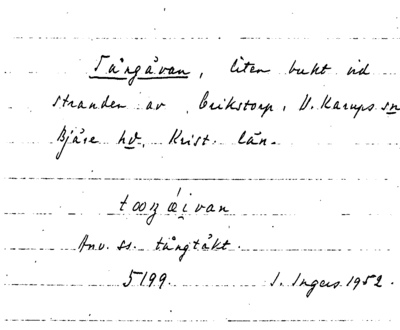 Tångåvan, liten bukt vid
stranden av Erikstorp, V. Karups sn
Bjäre hd. Krist. län.
Anv. ss. tångtäkt.
5199. I. Ingers 1952.